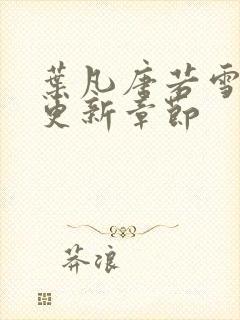 葉凡唐若雪
更新章節
莽浪